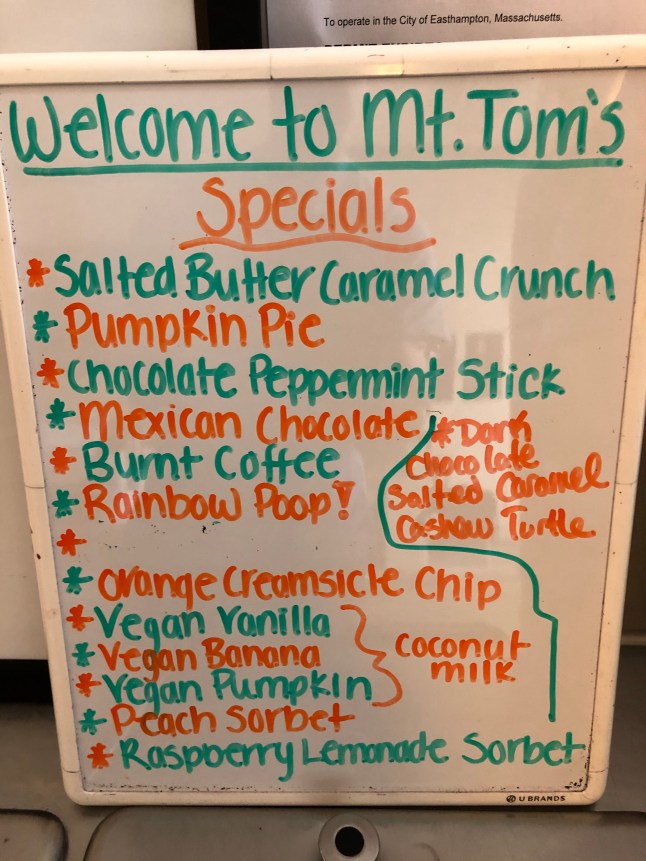 To operate in the City of Easthampton, Massachusetts.
Welcome to Mt. Tom's
Specials
* Salted Butter Caramel Crunch
* Pumpkin Pie
* Chocolate Peppermint Stick
* Mexican Chocolate
* Burnt Coffee
* Rainbow Poop!
*
* Dark
Chocolate
Salted Caramel
Cashew Turtle
* Orange Creamsicle Chip
* Vegan Vanilla
* Vegan Banana
* Vegan Pumpkin
coconut
milk
* Peach Sorbet
* Raspberry Lemonade Sorbet
U BRANDS